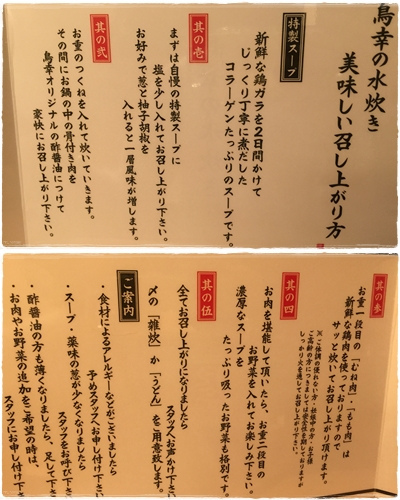 鳥幸の水炊き
美味しい召し上がり方
特製スープ
新鮮な鶏ガラを2日間かけて
じっくり丁寧に煮だした
コラーゲンたっぷりのスープです。
其の壱
まずは自慢の特製スープに
塩を少し入れてお召し上がり下さい。
お好みで葱と柚子胡椒を
入れると一層風味が増します。
其の弐
お重のつくねを入れて炊いていきます。
その間にお鍋の中の骨付き肉を
鳥幸オリジナルの酢醤油につけて
豪快にお召し上がり下さい。
其の参
お重一段目の「むね肉」・「もも肉」は
新鮮な鶏肉を使っておりますので
サッと炊いてお召し上がり頂けます。
※ご体調の優れない方・妊娠中の方・お子様
ご高齢の方につきましては安全性を期しておりますが
しっかり火を通してお召し上がり下さい。
其の四
お肉を堪能して頂いたら、お重二段目の
お野菜を入れてお楽しみ下さい。
濃厚なスープを
たっぷり吸ったお野菜も格別です
其の伍
全てお召し上がりになりましたら
スタッフへお声かけ下さい
〆の「雑炊」か「うどん」をご用意致します。
ご案内
・食材によるアレルギーなどがございましたら
予めスタッフへお申し付け下さい
・スープ・薬味の葱が少なくなりましたら
スタッフをお呼び下さい
・酢醤油の方も薄くなりましたら、足して下
お肉やお野菜の追加をご希望の時は、
スタッフにお申し付け下さ